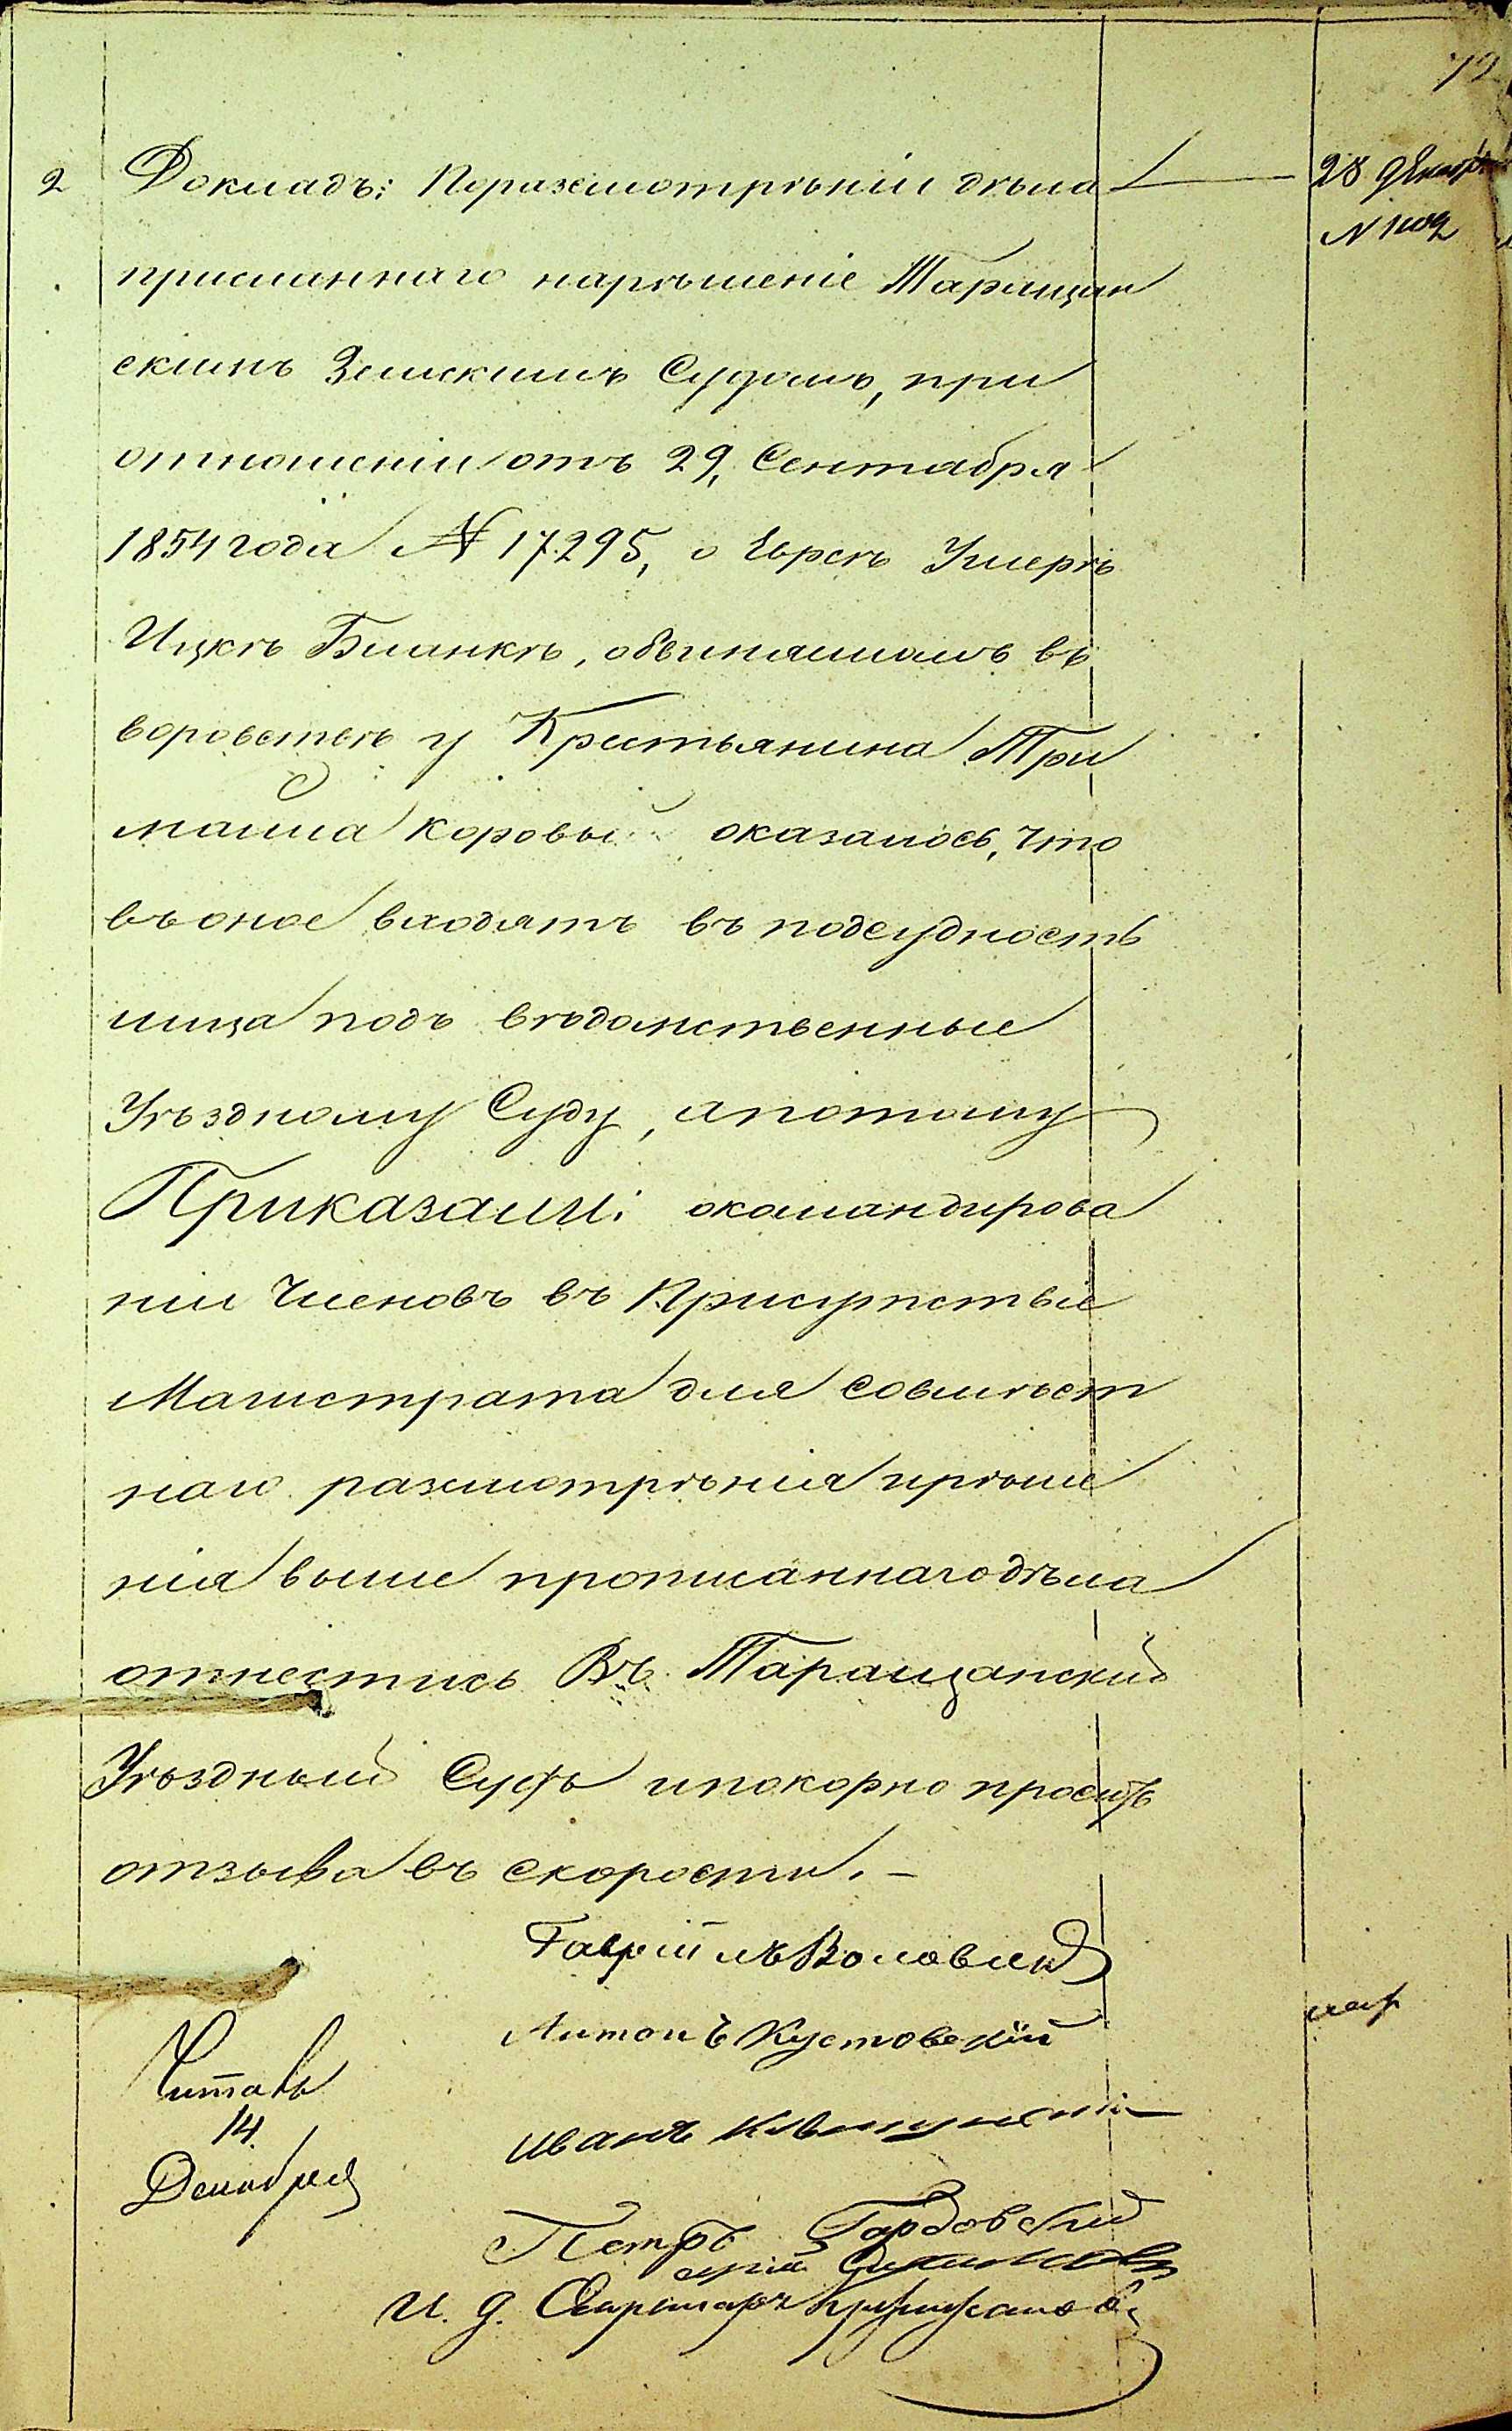 72
2 Докладъ: Поразсмотрѣніи дѣла
28 декабря
N
присланнаго нарѣшеніе Таращан
скимъ Земскимъ Судомъ, при
отношеніи отъ 29, Сентября
1854 года № 17295, о Евреѣ Умерѣ
Ицкѣ Бланкѣ, обвиняемомъ въ
воровствѣ у Крестьянина
коровы оказалось, что
въ оное входятъ въ подсудность
лица подъ вѣдомственные
Уѣздному Суду, апотому
Приказали: окомандирова
ніи Членовъ въ Присутствіе
Магистрата для совмѣст
наго разсмотрѣнія ирѣше
нія выше прописаннагодѣла
отнестись Въ Таращанскій
Уѣздный Судъ ипокорно просить
отзыва въ скорости. –
Гавріилъ
Антонъ Кустовскій
Читалъ
14
Декабря
Иванъ
Петръ Гордовскій
И. д. Секретаря